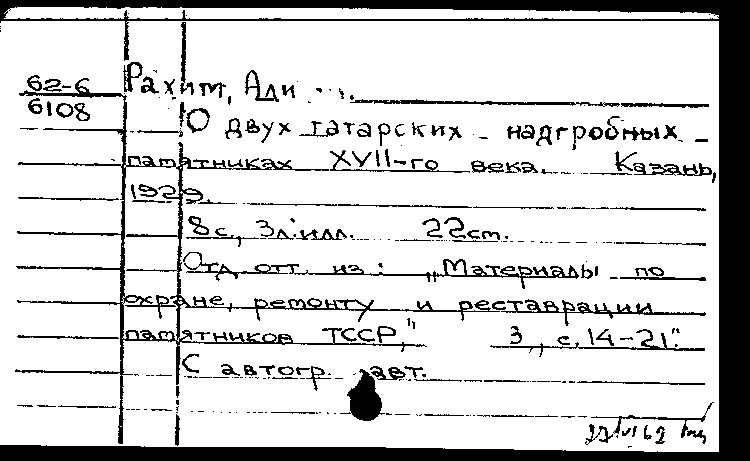 62-6
6108
Рахим, Али
О двух татарских надгробных
памятниках XVII-го века. Казань,
1929.
8с., 3л.илл. 22см.
Отд. отт. из: „Материалы по
охране, ремонту и реставрации
памятников ТССР," 3, с. 14-21".
С автогр. авт.